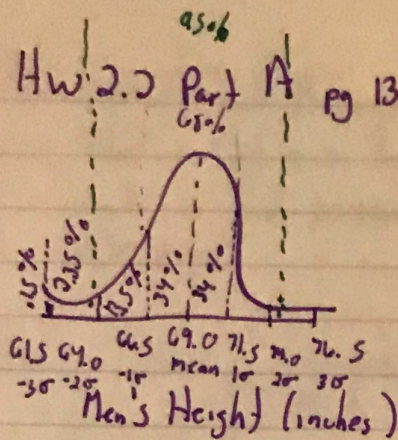 95%
Hw 2.2 Part A pg 13
68%
.15% 2.35% 13.5% 34% 34%
61.5 64.0 66.5 69.0 71.5 74.0 76.5
-3σ -2σ -1σ mean 1σ 2σ 3σ
Men's Height (inches)